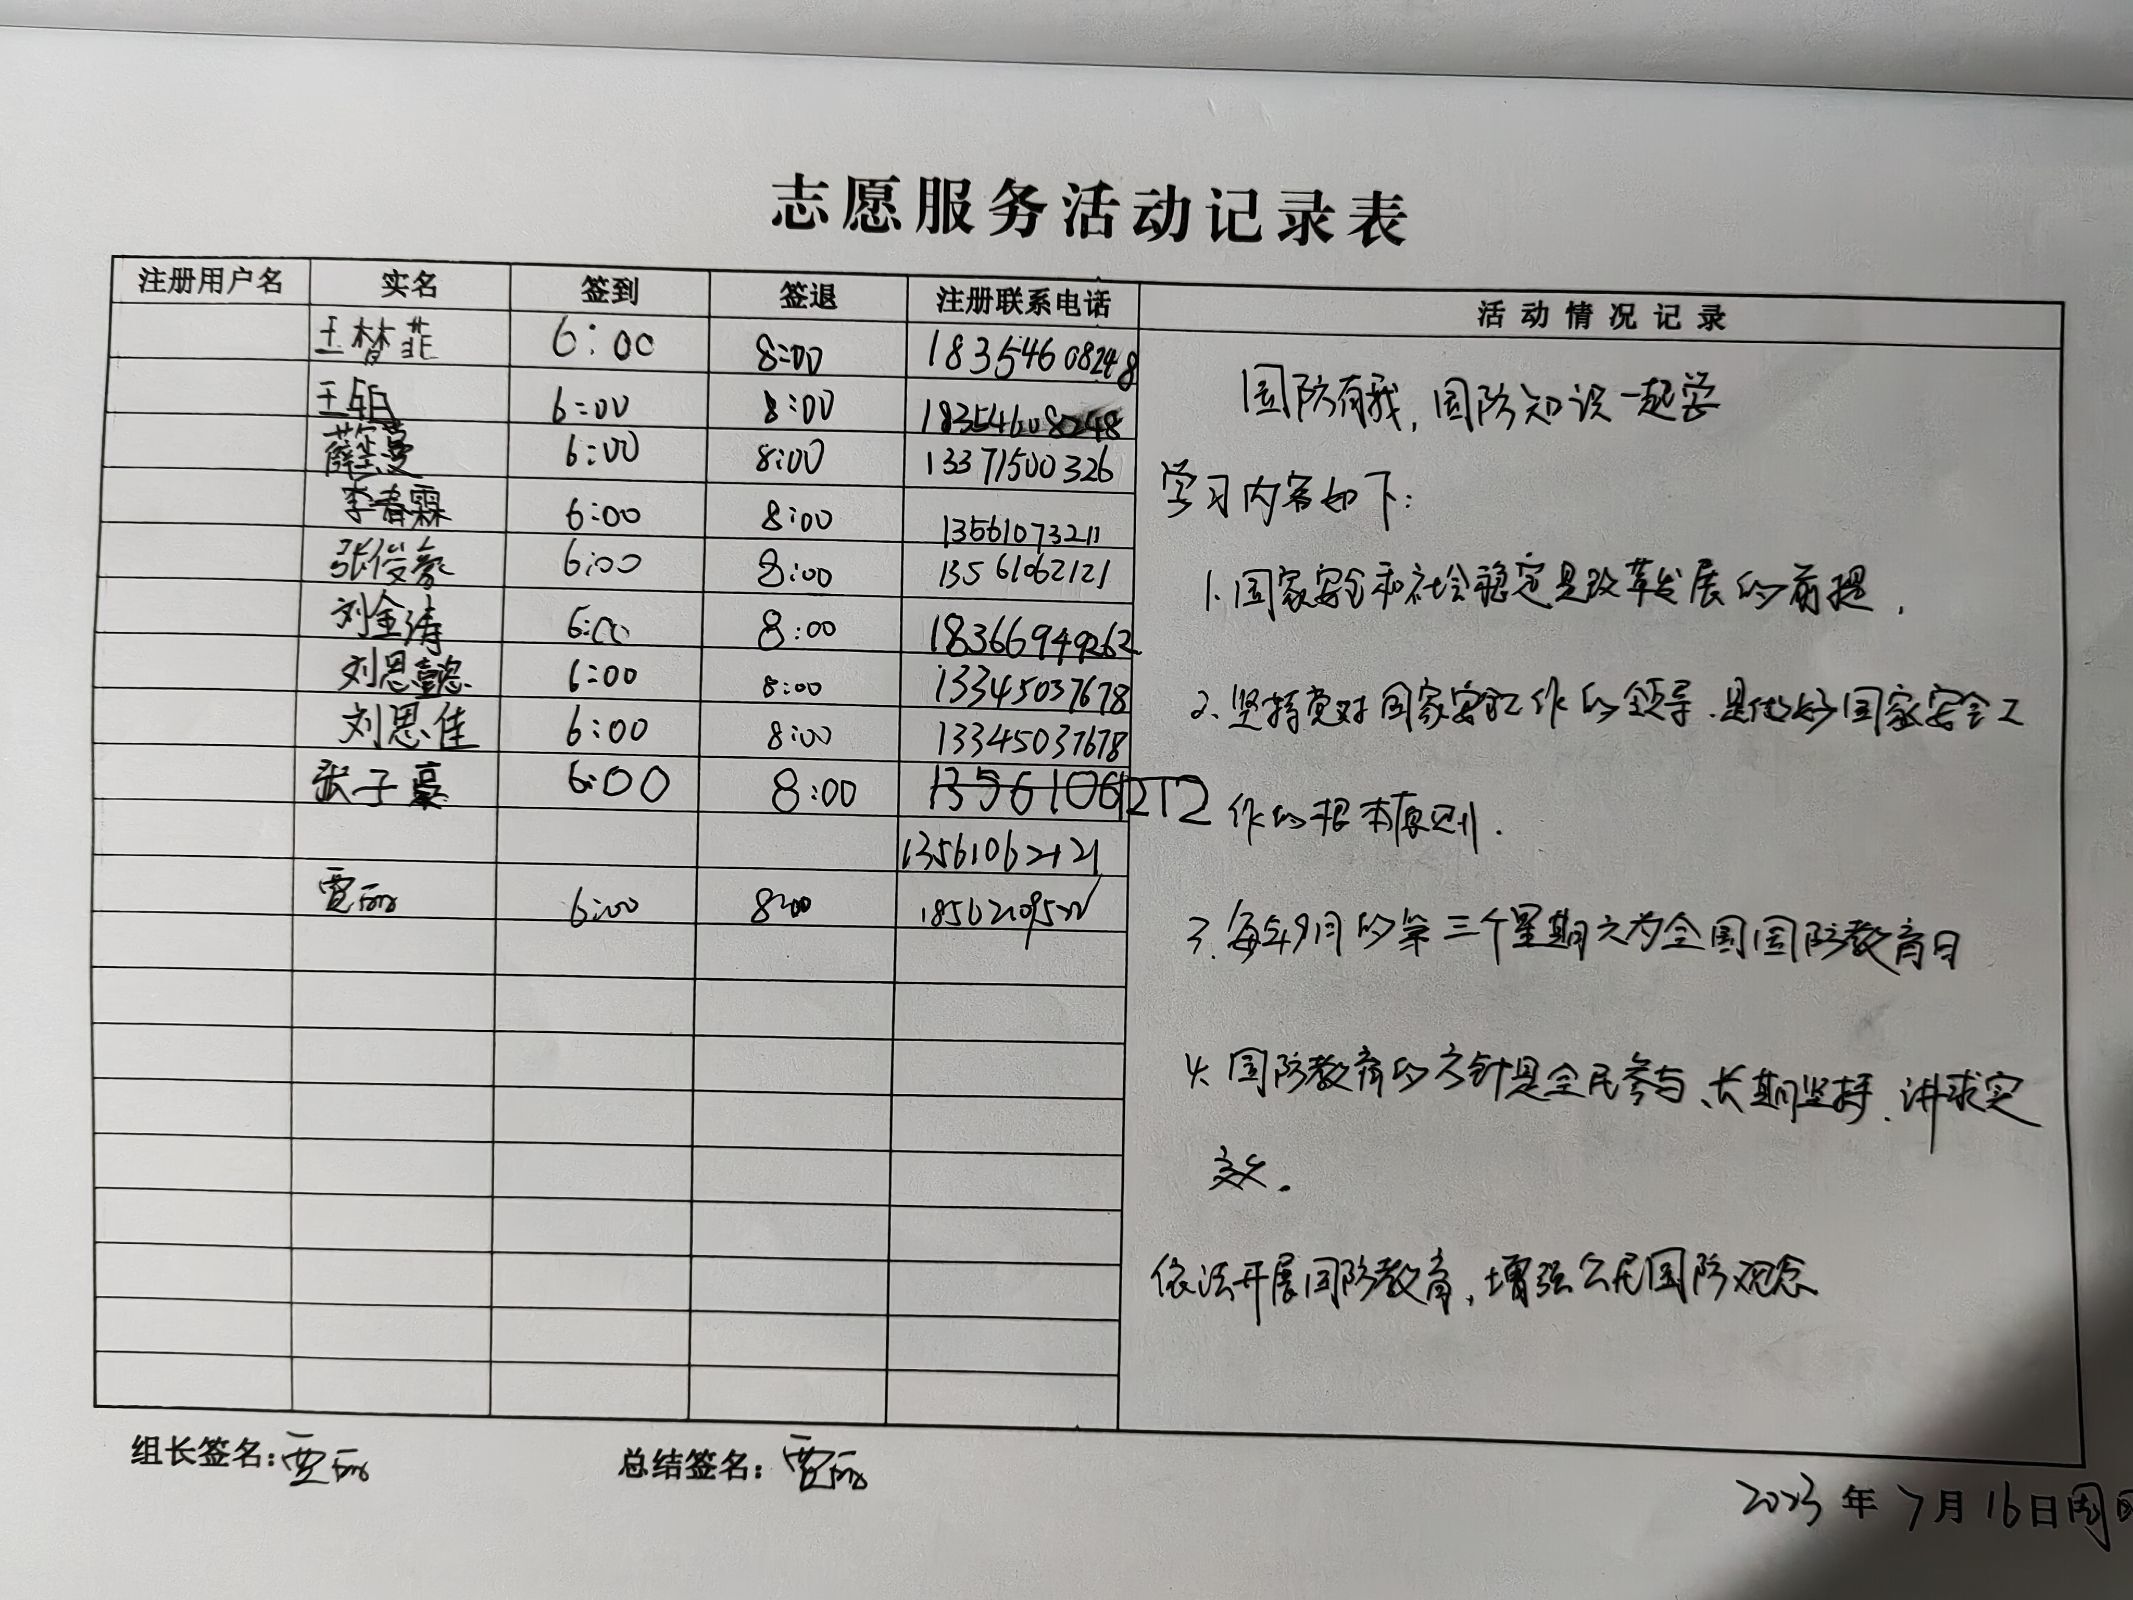 志愿服务活动记录表
注册用户名 实名 签到 签退 注册联系电话 活动情况记录
王梦菲 6:00 8:00 18354608248
王 6:00 8:00 18354608248
薛 曼 6:00 8:00 13371500326
李春霖 6:00 8:00 13561073211
张俊豪 6:00 8:00 13561062121
刘金涛 6:00 8:00 18366949262
刘思懿 6:00 8:00 13345037678
刘思佳 6:00 8:00 13345037678
张子豪 6:00 8:00
13561062121
贾丽 6:00 8:00
国防有我,国防知识一起学
学习内容如下:
1.国家安全和社会稳定是改革发展的前提.
2、坚持党对国家安全工作的领导.是做好国家安全工
作的根本原则.
3.每年9月的第三个星期六为全国国防教育日
4、国防教育的方针是全民参与、长期坚持、讲求实
效。
依法开展国防教育,增强公民国防观念
组长签名:贾丽 总结签名:贾丽
2023年7月16日周日